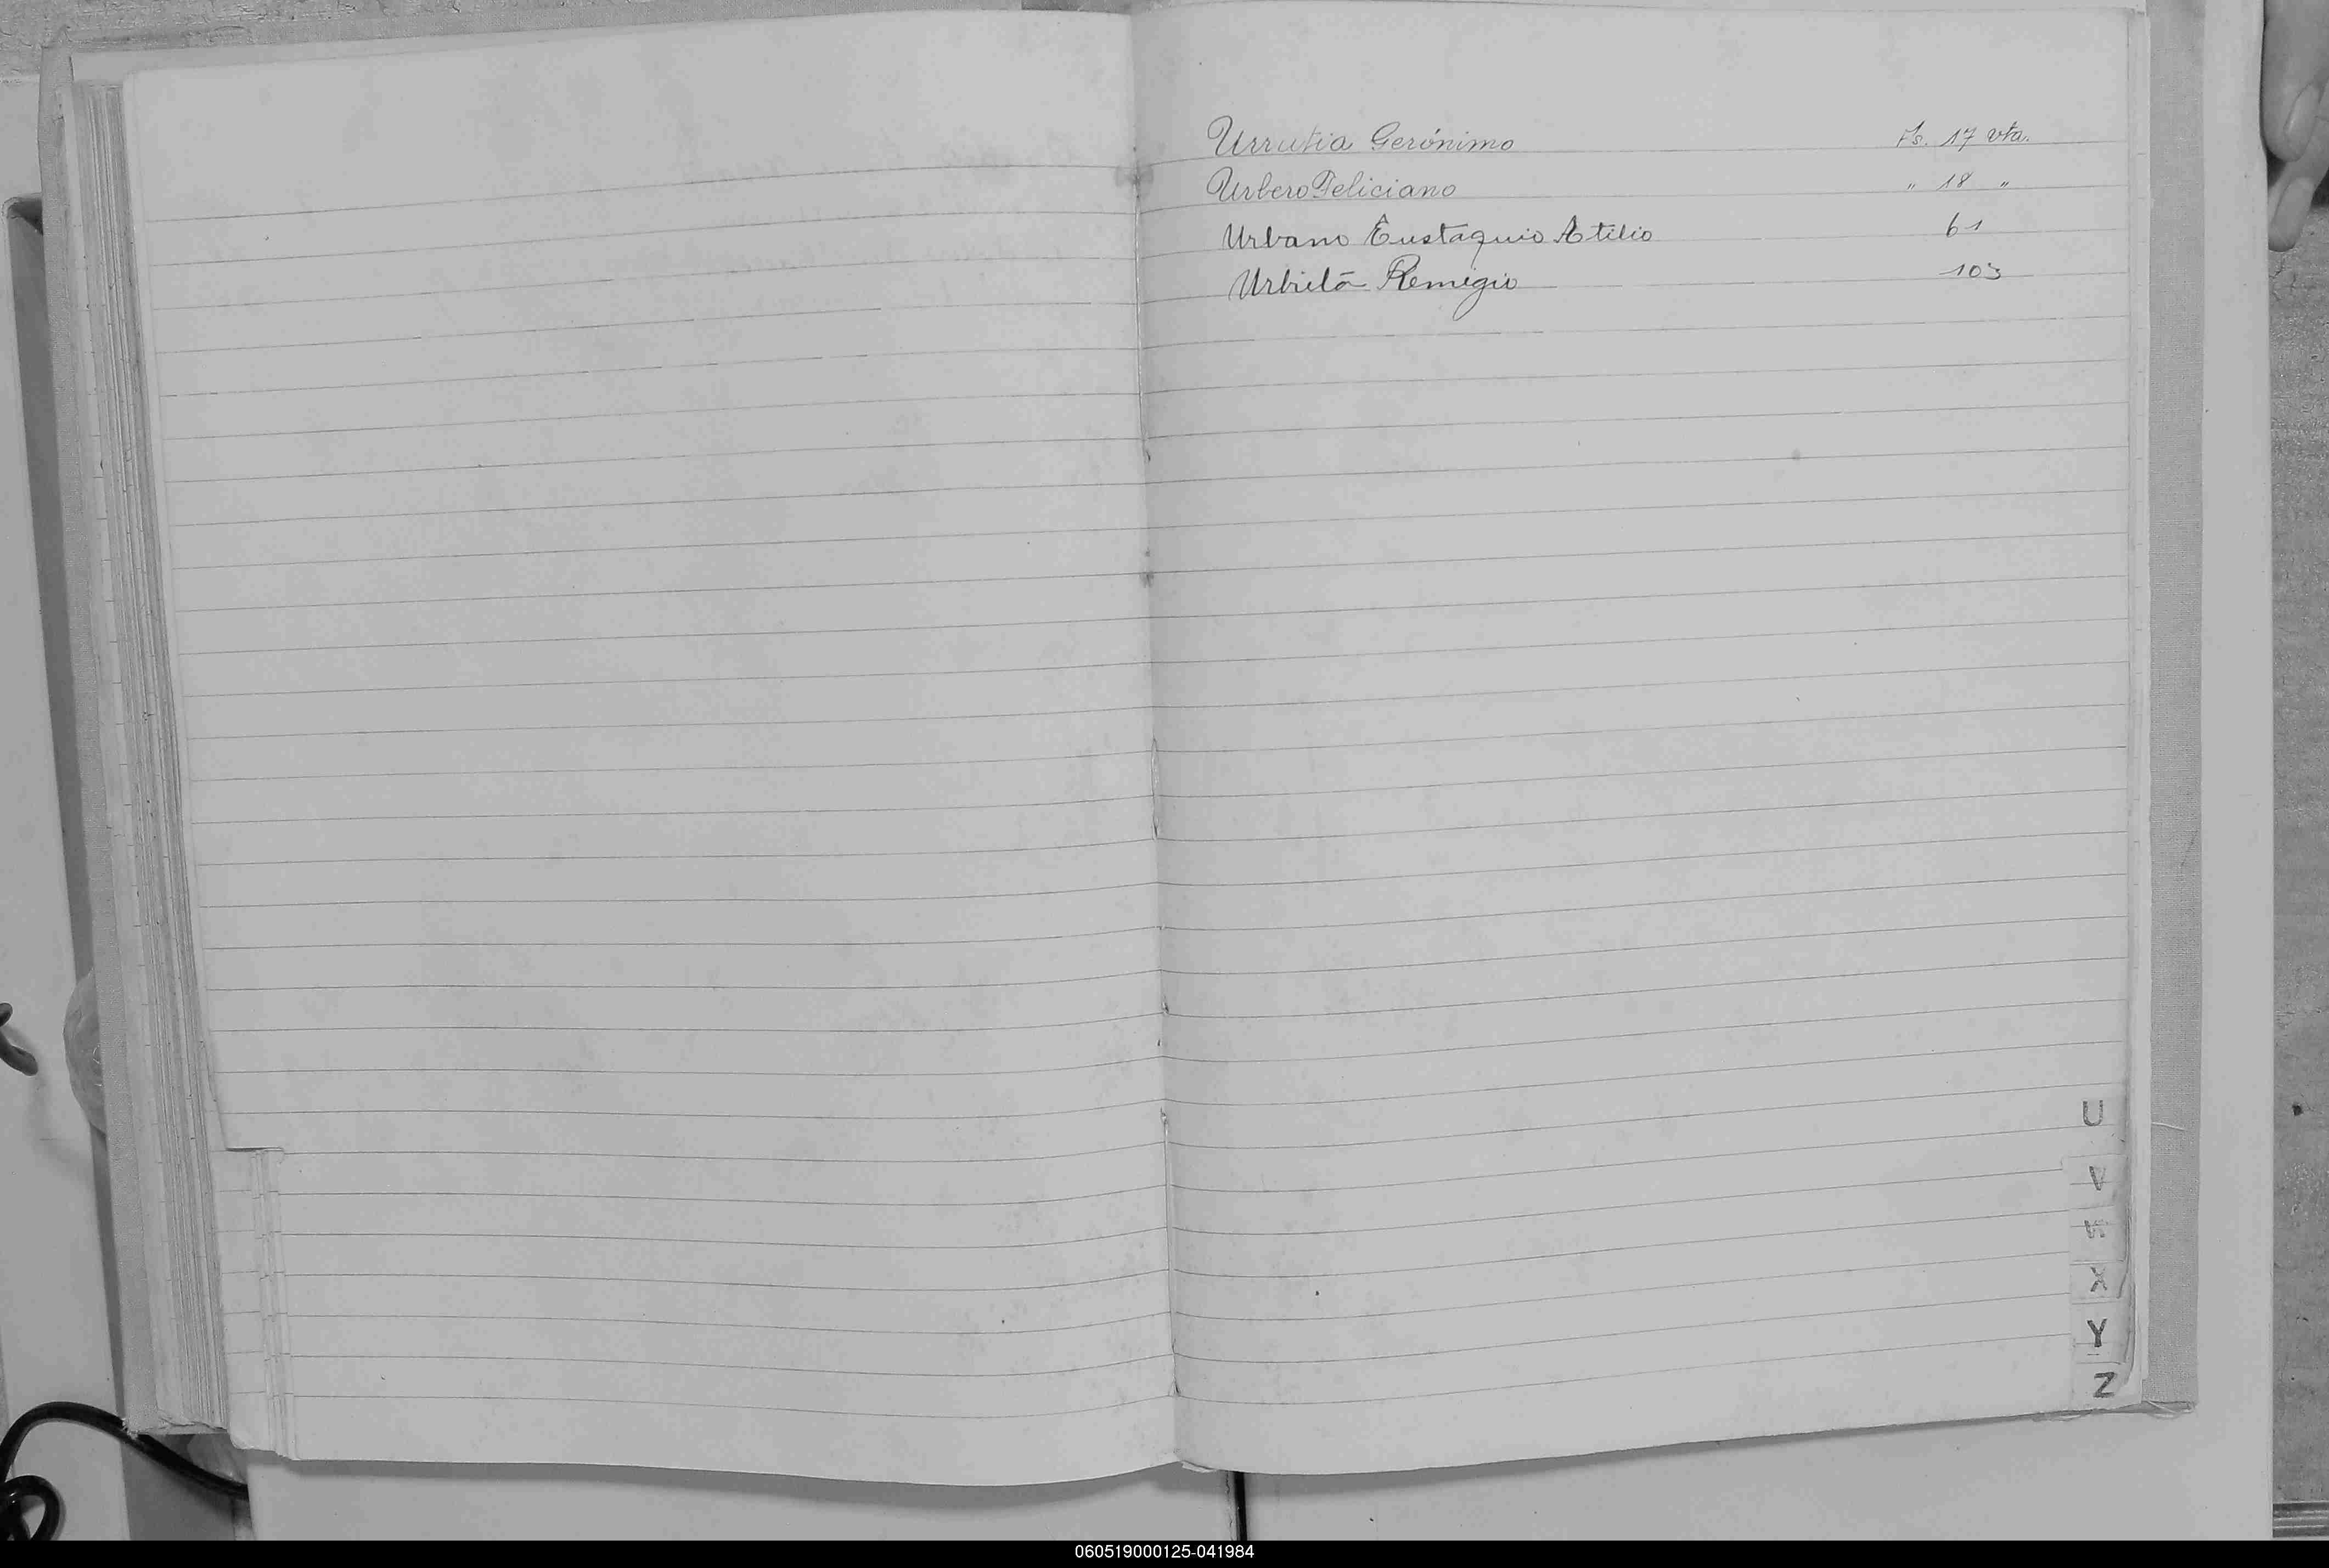 Urrutia Gerónimo Fs. 17 vta.
Urbero Feliciano " 18 "
Urbano Eustaquio Atilio 61
Remigio 103
U
V
X
Y
Z
060519000125-041984